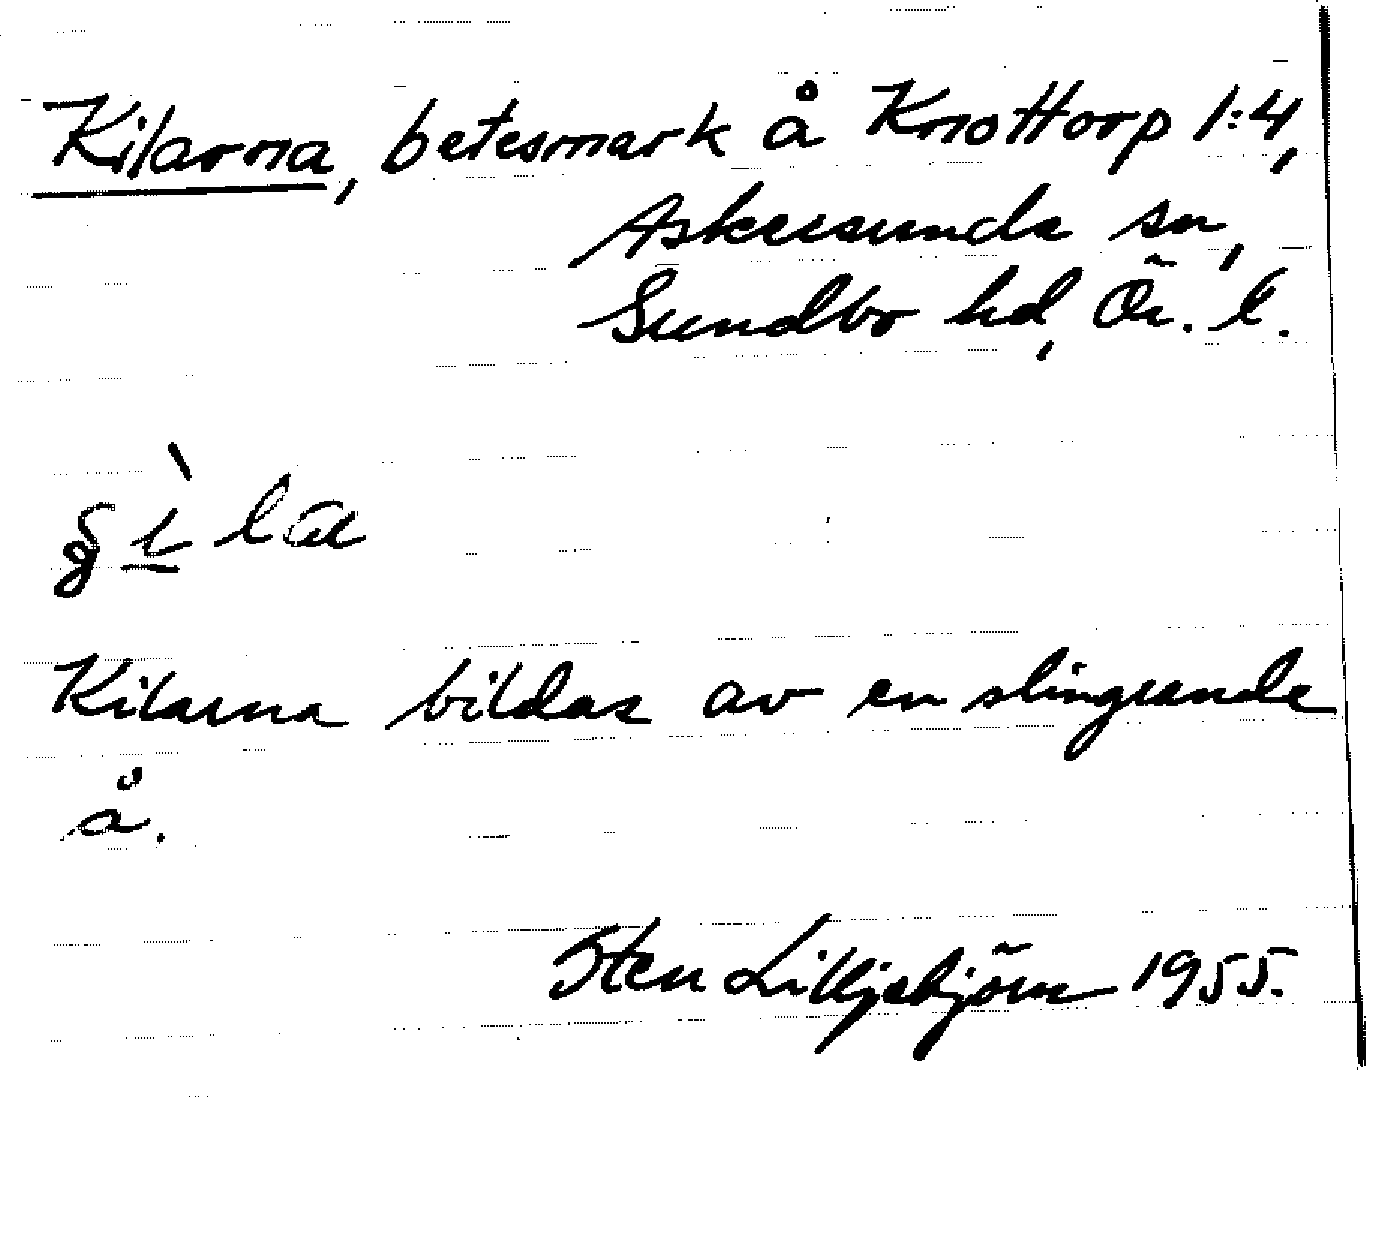 Kilarna, betesmark å Knottorp 1:4,
Askersunds sn,
Sundbo hd, Ör. l.
Kilarna bildas av en slingrande
å.
Sten Lilljebjörn 1955.